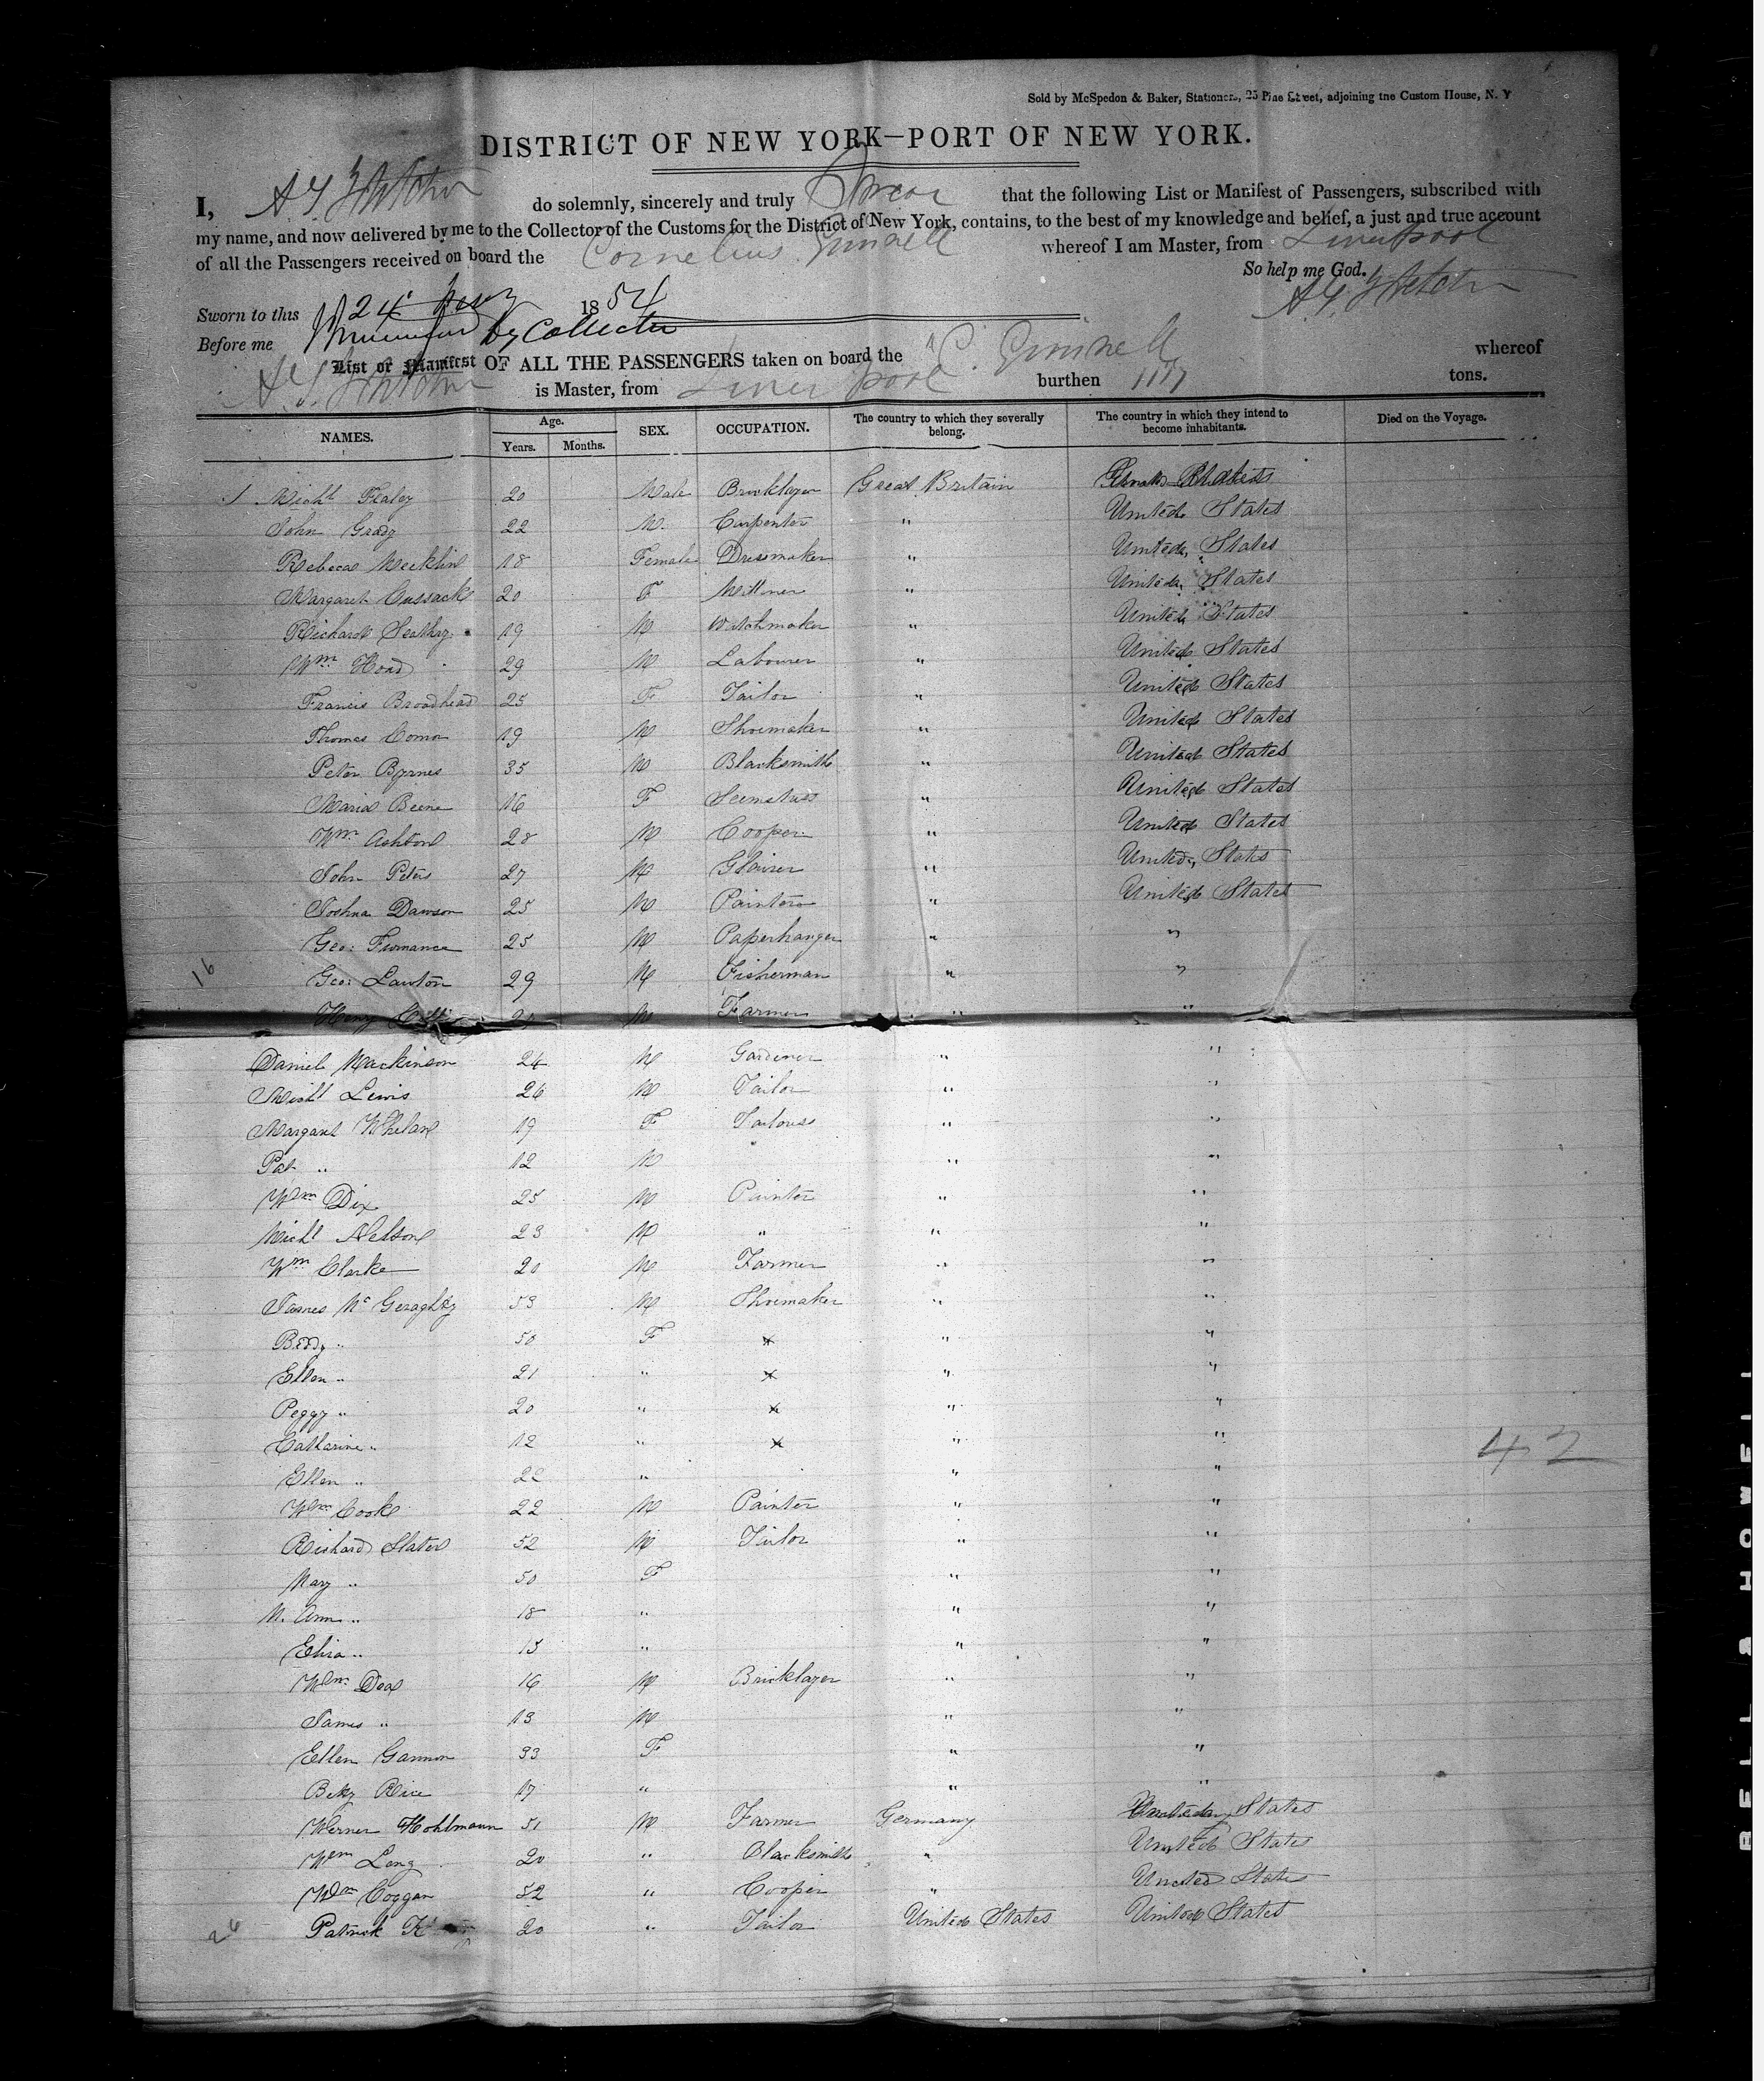 Sold by McSpedon & Baker, Stationers, 25 Pine Street, adjoining the Custom House, N. Y
DISTRICT OF NEW YORK—PORT OF NEW YORK.
I, do solemnly, sincerely and truly Swear that the following List or Manifest of Passengers, subscribed with
my name, and now delivered by me to the Collector of the Customs for the District of New York, contains, to the best of my knowledge and belief, a just and true account
of all the Passengers received on board the Cornelius Grinnell whereof I am Master, from Liverpool
So help me God.
Sworn to this 24 1854
Before me by Collector
List or Manifest OF ALL THE PASSENGERS taken on board the C. Grinnell whereof
is Master, from Liverpool burthen 1117 tons.
NAMES. Age. Years. Months. SEX. OCCUPATION. The country to which they severally belong. The country in which they intend to become inhabitants. Died on the Voyage.
1 Michl Fealey 20 Male Bricklayer Great Britain States
John Grady 22 M. Carpenter " United States
Rebecca Mecklin 18 Female Dressmaker " United States
Margaret Cussack 20 F Milliner " United States
Richard 19 M Watchmaker " United States
Wm Hoad 29 M Labourer " United States
Francis Broadhead 25 F Tailor " United States
Thomas 19 M Shoemaker " United States
Peter Byrnes 35 M Blacksmith " United States
Maria Beene 16 F " United States
Wm Ashton 28 M Cooper " United States
John Peters 27 M " United States
Joshua Dawson 25 M Painter " United States
Geo: 25 M Paperhanger " "
Geo: Lawton 29 M Fisherman " "
16
Henry M Farmer " "
Daniel Mackinson 24 M Gardener " "
Michl Lewis 26 M Tailor " "
Margaret Whelan 19 F Tailoress " "
Pat " 12 M " "
Wm Dix 25 M Painter " "
Michl Nelson 23 M " " "
Wm Clarke 20 M Farmer " "
James Mc Geraghty 53 M Shoemaker " "
Biddy " 50 F x " "
Ellen " 21 " x " "
Peggy " 20 " x " "
Catharine " 12 " x " "
42
Ellen " 22 " " "
Wm Cook 22 M Painter " "
Richard Slater 52 M Tailor " "
Mary " 50 F " "
M. Ann " 18 " " "
Eliza " 15 " " "
Wm Deal 16 M Bricklayer " "
James " 13 M " "
Ellen Gannon 33 F " "
Betsy Rice 17 " " "
Werner Hohlmann 51 M Farmer Germany United States
Wm Long 20 " Blacksmith " United States
Wm Coggan 52 " Cooper " United States
26
Patrick 20 " Tailor United States United States
BELL & HOWELL